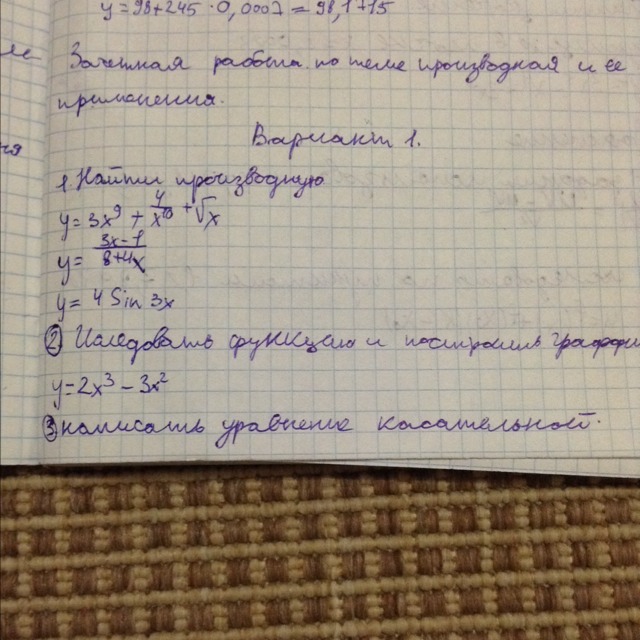 y=98+245·0,0007=98,1715
Зачетная работа по теме производная и ее
применения.
Вариант 1.
1 Найти производную
y=3x⁹+4/x¹⁰+√x
y=(3x-1)/(8+4x)
y=4Sin3x
② Исследовать функцию и построить граффик
y=2x³-3x²
③ написать уравнение касательной.